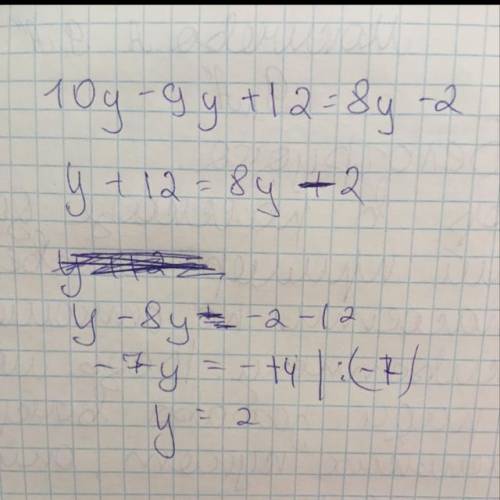 10y - 9y + 12 = 8y - 2
y + 12 = 8y - 2
y - 8y = -2 - 12
-7y = -14 | :(-7)
y = 2